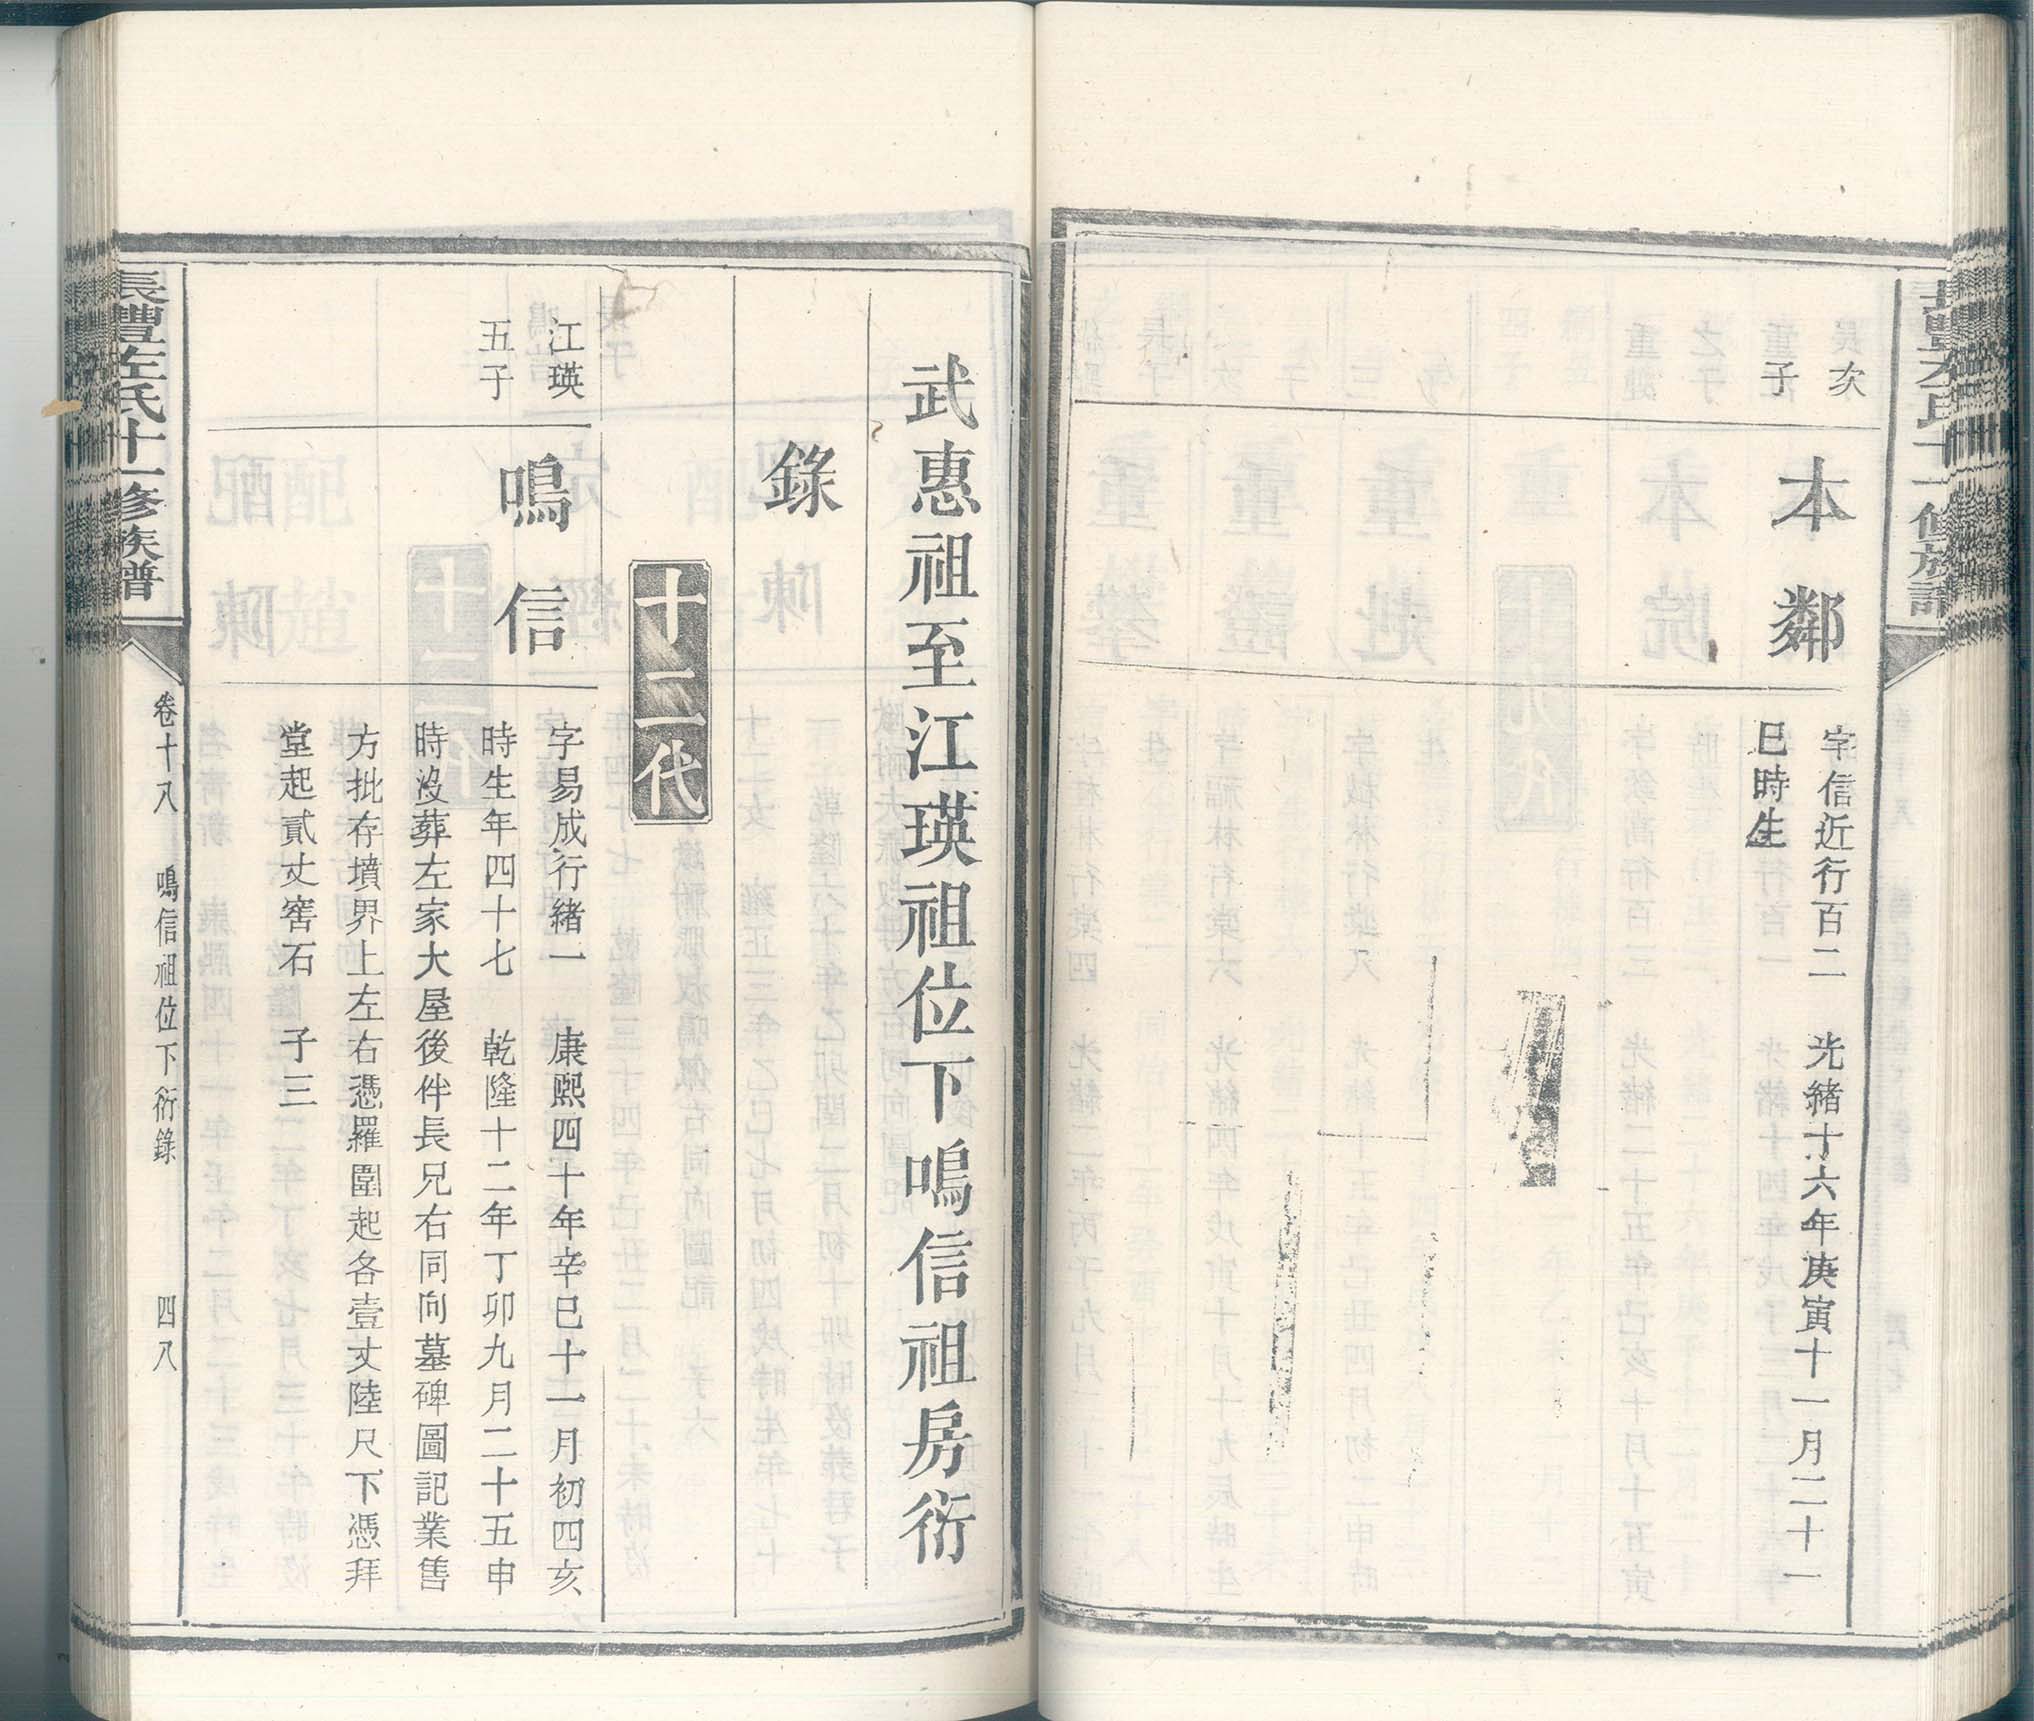 長豐左氏十一修族譜
次
子
本鄰
字信近行百二　光緒十六年庚寅十一月二十一
巳時生
武惠祖至江瑛祖位下鳴信祖房衍
錄
十二代
江瑛
五子
鳴信
字易成行緒一　康熙四十年辛巳十一月初四亥
時生年四十七　乾隆十二年丁卯九月二十五申
時沒葬左家大屋後伴長兄右同向墓碑圖記業售
方批存墳界上左右憑羅圍起各壹丈陸尺下憑拜
堂起貳丈窖石　子三
長豐左氏十一修族譜
卷十八　鳴信祖位下衍錄　四八